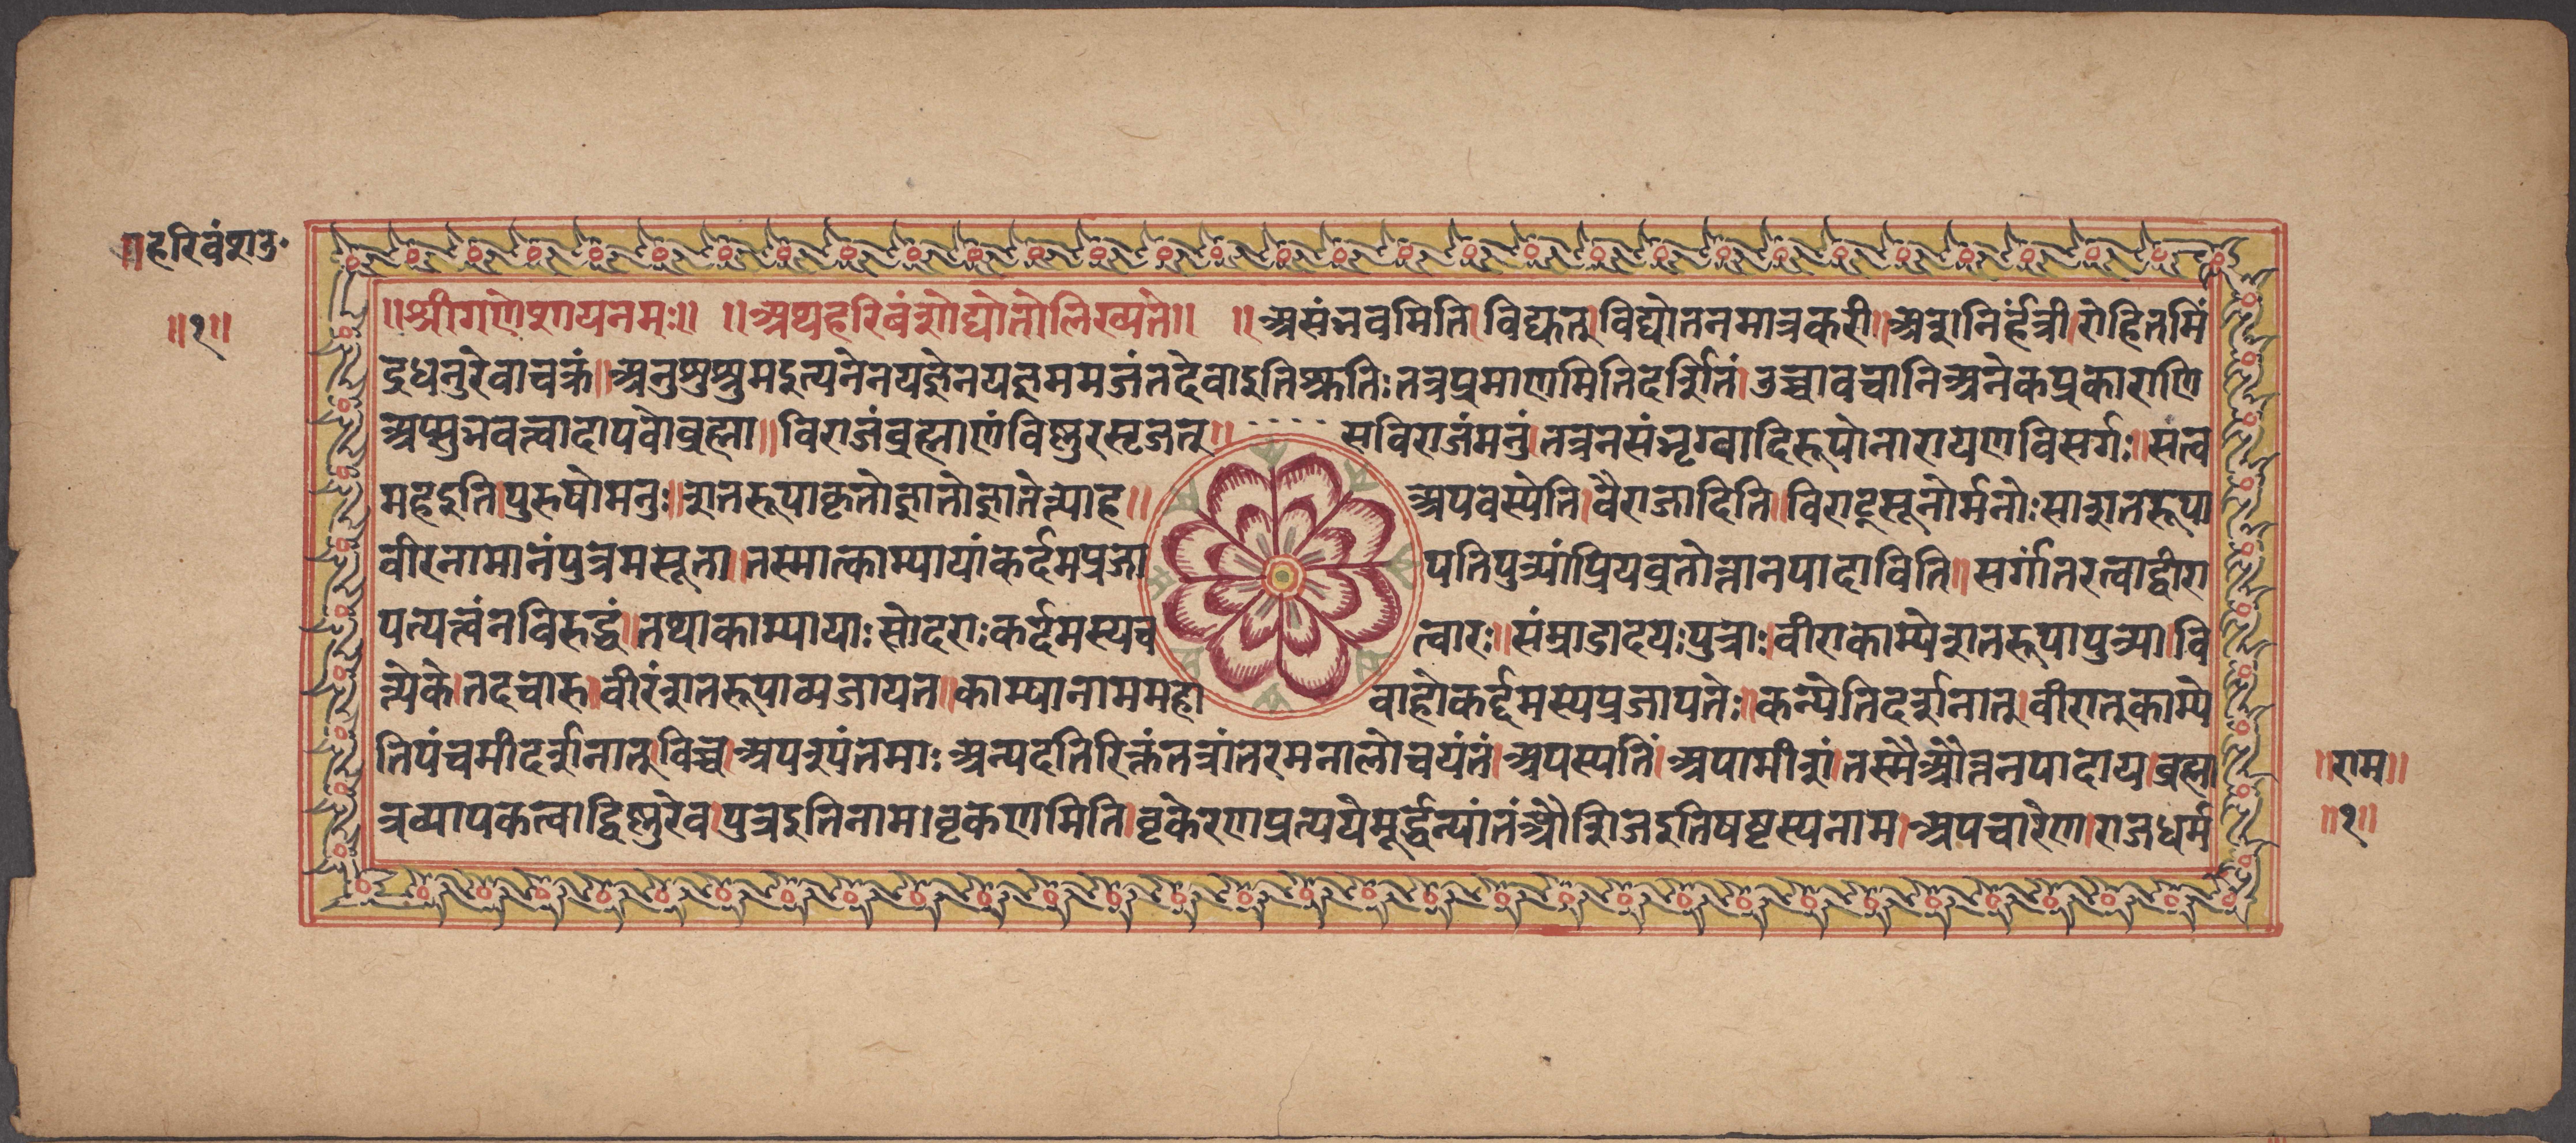 ॥हरिवंशउ॰
॥१॥
॥श्रीगणेशायनमः॥ ॥अथहरिवंशोद्योतोलिख्यते॥ ॥असंभवमिति।विद्युत्।विद्योतनमात्रकरी॥अशनिर्हंत्री।रोहितमिं
द्रधनुरेवाचक्रं॥अनुष्टुप्सुमइत्यनेनयज्ञेनयज्ञमयजंतदेवाइतिश्रुतिःतत्रप्रमाणमितिदर्शितं।उच्चावचानिअनेकप्रकाराणि
अप्सुभवत्वादापवोब्रह्मा॥विराजंब्रह्माणंविष्णुरसृजत्॥ सविराजंमनुं।तत्रनसंभृग्वादिरूपोनारायणविसर्गः॥सत्व
महइति।पुरुषोमनुः॥शतरूपाकृतोज्ञातोज्ञातेत्याह॥ अपवस्येति।वैराजादिति॥विराट्सूनोर्मनोःसाशतरूपा
वीरनामानंपुत्रमसूता।तस्मात्काम्यायांकर्दमप्रजा पतिपुत्र्यांप्रियव्रतोत्तानपादाविति॥सर्गांतरत्वाद्वीरा
पत्यत्वंनविरुद्धं॥तथाकाम्यायाःसोदराःकर्दमस्यच त्वारः॥संम्राडादयःपुत्राः।वीराकाम्येशतरूपापुत्र्या।वि
त्येके।तदचारु॥वीरंशतरूपाव्यजायत॥काम्यानाममहा वाहोकर्द्दमस्यप्रजापतेः॥कन्येतिदर्शनात्।वीरात्काम्ये
तिपंचमीदर्शनात्।विच्च।अपश्पंतमाः।अन्यदतिरिक्तंतत्रांतरमनालोचयंतं।अपस्पतिं।अपामीशं।तस्मैऔत्तनपादाय।ब्रह्म
त्रव्यापकत्वाद्विष्णुरेव।पुत्रइतिनाम।वृकेणमिति।वृकेरणप्रत्ययेमूर्द्धन्यांतंऔशिजइतिषष्ठस्यनाम।अपचारेण।राजधर्म
॥राम॥
॥१॥